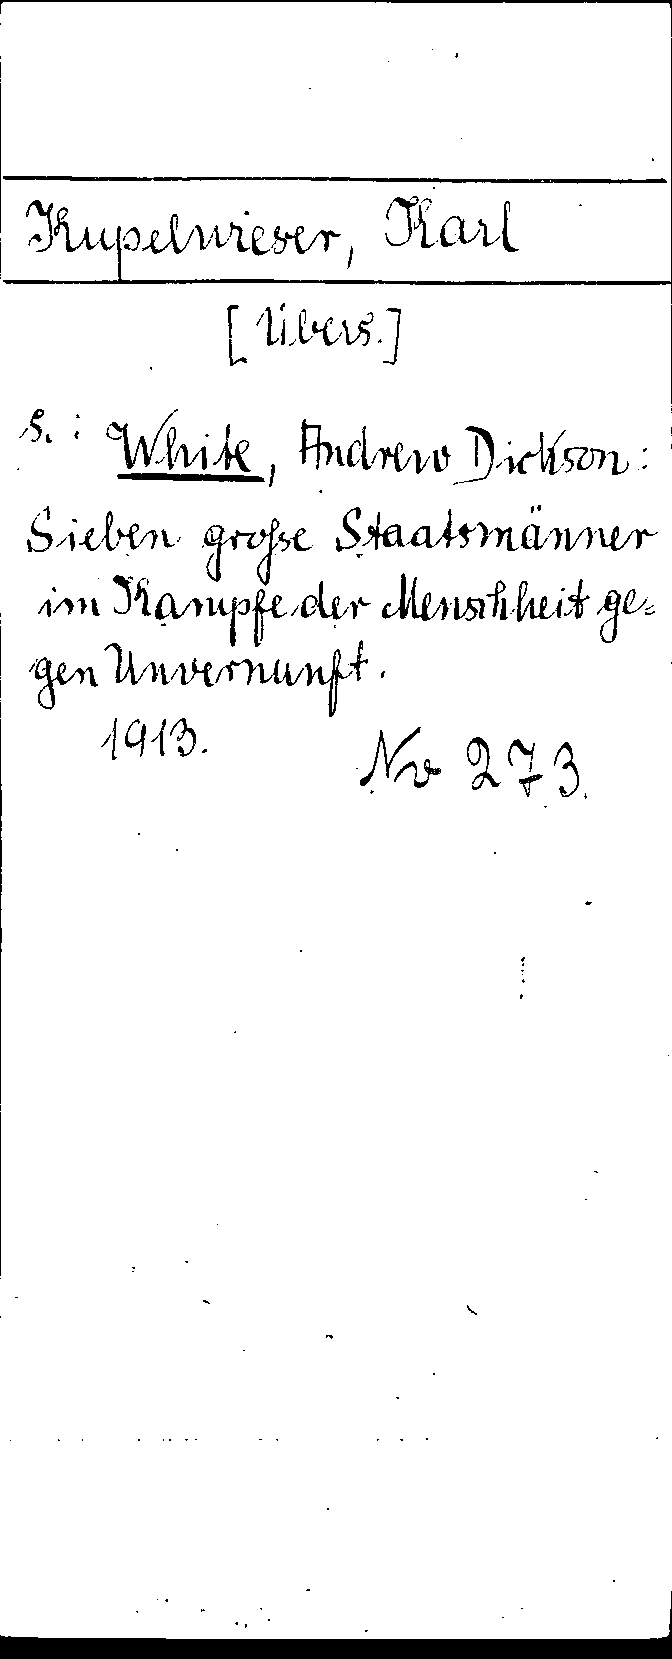 Kupelwieser, Karl
[Übers.]
s.: White, Andrew Dickson:
Sieben große Staatsmänner
im Kampfe der Menschheit ge=
gen Unvernunft.
1913.
Nv 273.